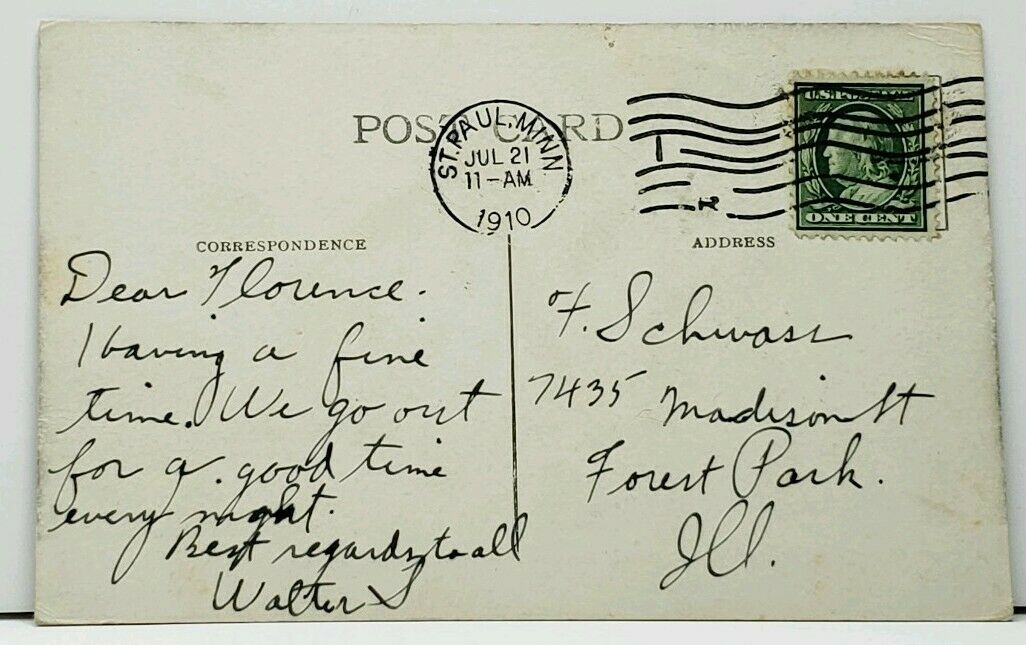 POST CARD
ST. PAUL, MINN
JUL 21
11-AM
1910
ONE CENT
CORRESPONDENCE
ADDRESS
Dear Florence.
Having a fine
time. We go out
for a. good time
every night.
Best regards to all
Walter S
F. Schwass
7435 Madison St
Forest Park.
Ill.